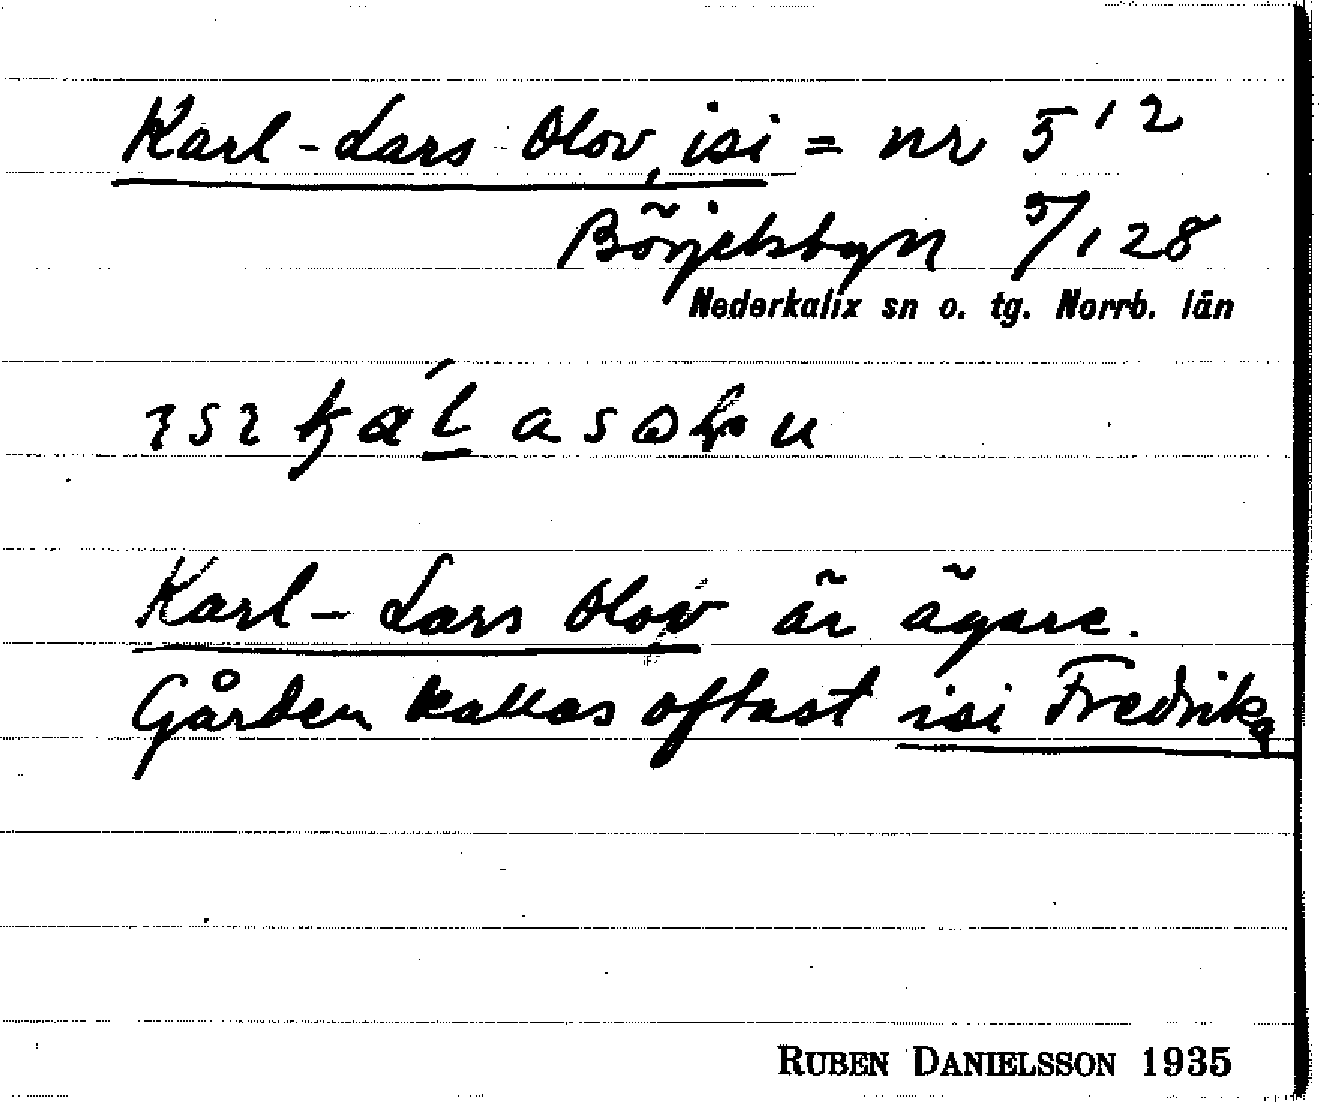 Karl-Lars Olov, isi = nr 5¹²
Börjelsbyn 5/128
Nederkalix sn o. tg. Norrb. län
Karl-Lars Olov är ägare.
Gården kallas oftast isi Fredrik
RUBEN DANIELSSON 1935